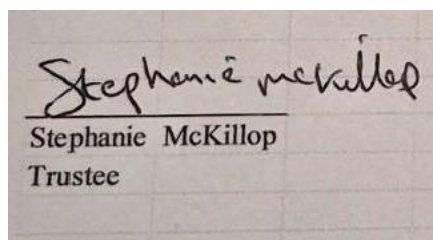 Stephanie McKillop
Stephanie McKillop
Trustee